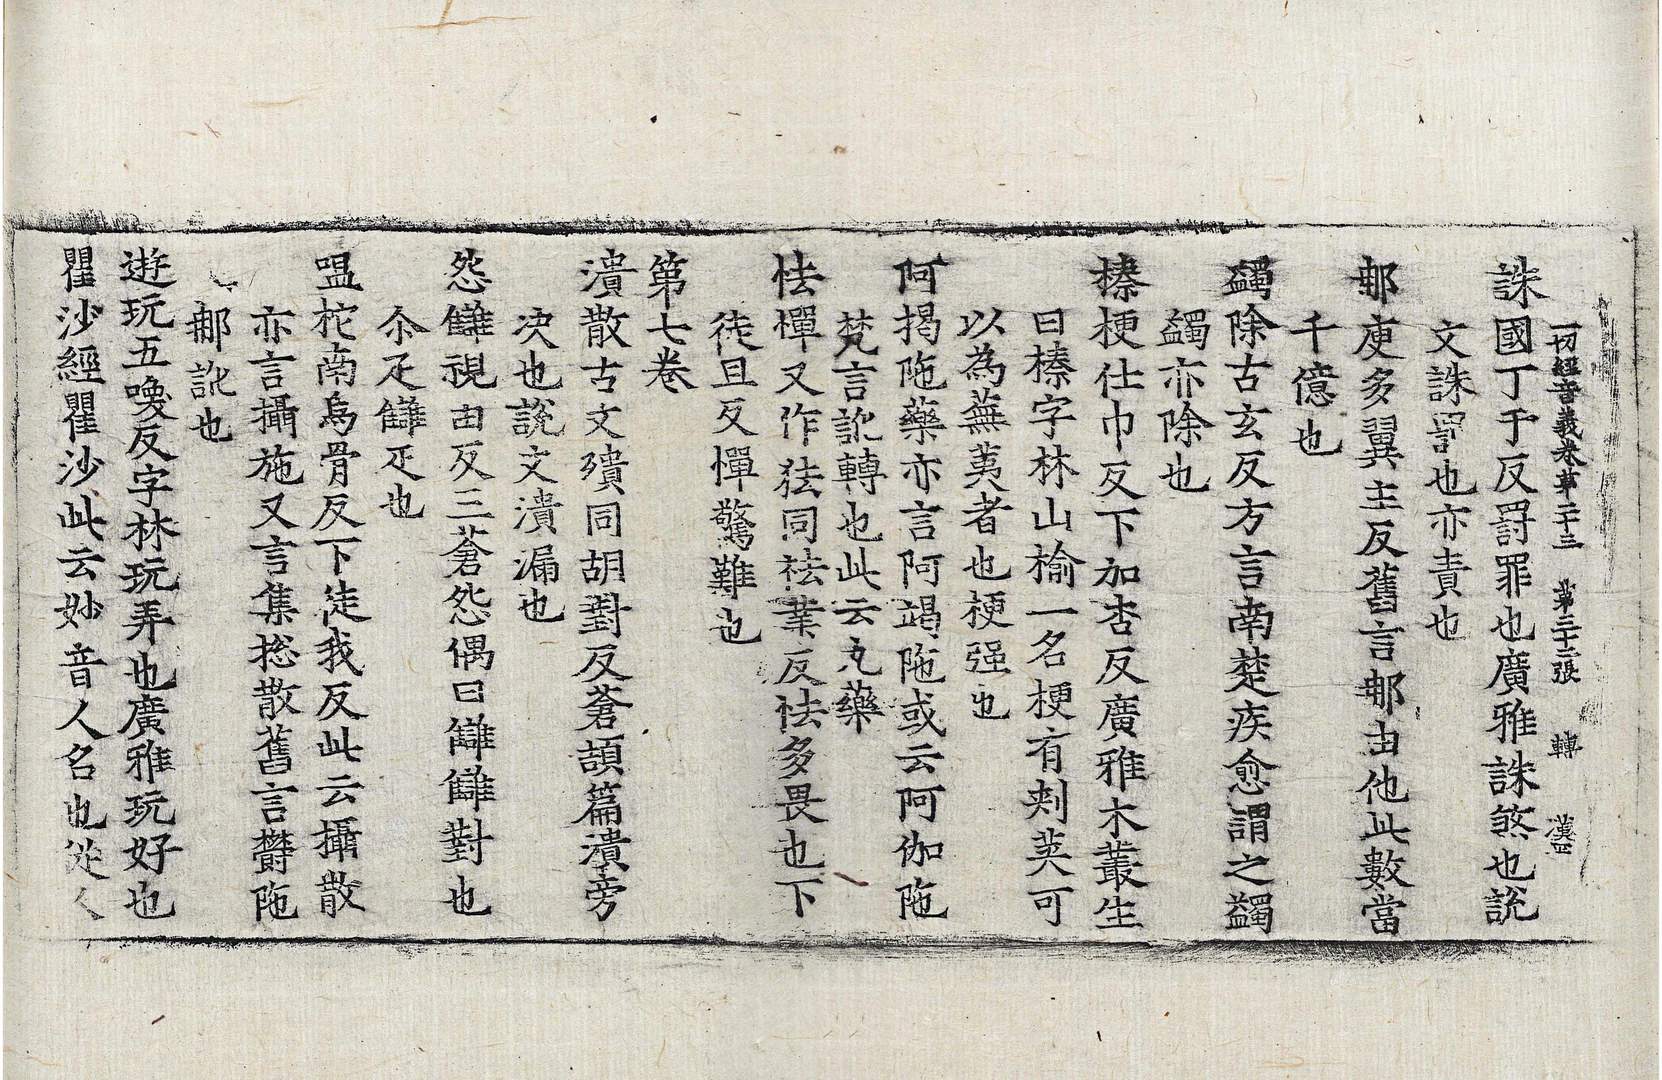 一切經音義卷第二十三 第三十二張 轉
誅國丁于反罸罪也廣雅誅煞也說
文誅罸也亦責也
那庾多翼主反舊言那由他此數當
千億也
蠲除古玄反方言南楚疾愈謂之蠲
蠲亦除也
榛梗仕巾反下加杏反廣雅木叢生
曰榛字林山榆一名梗有刾莢可
以為蕪荑者也梗强也
阿揭陁藥亦言阿竭陁或云阿伽陁
梵言訛轉也此云丸藥
怯憚又作㹤同祛業反怯多畏也下
徒旦反憚驚難也
第七卷
潰散古文殨同胡對反蒼頡篇潰旁
决也說文潰漏也
怨讎視由反三蒼怨偶曰讎讎對也
尒疋讎疋也
嗢柁南烏骨反下徒我反此云攝散
亦言攝施又言集捴散舊言欝陁
那訛也
遊玩五喚反字林玩弄也廣雅玩好也
瞿沙經瞿沙此云妙音人名也從人